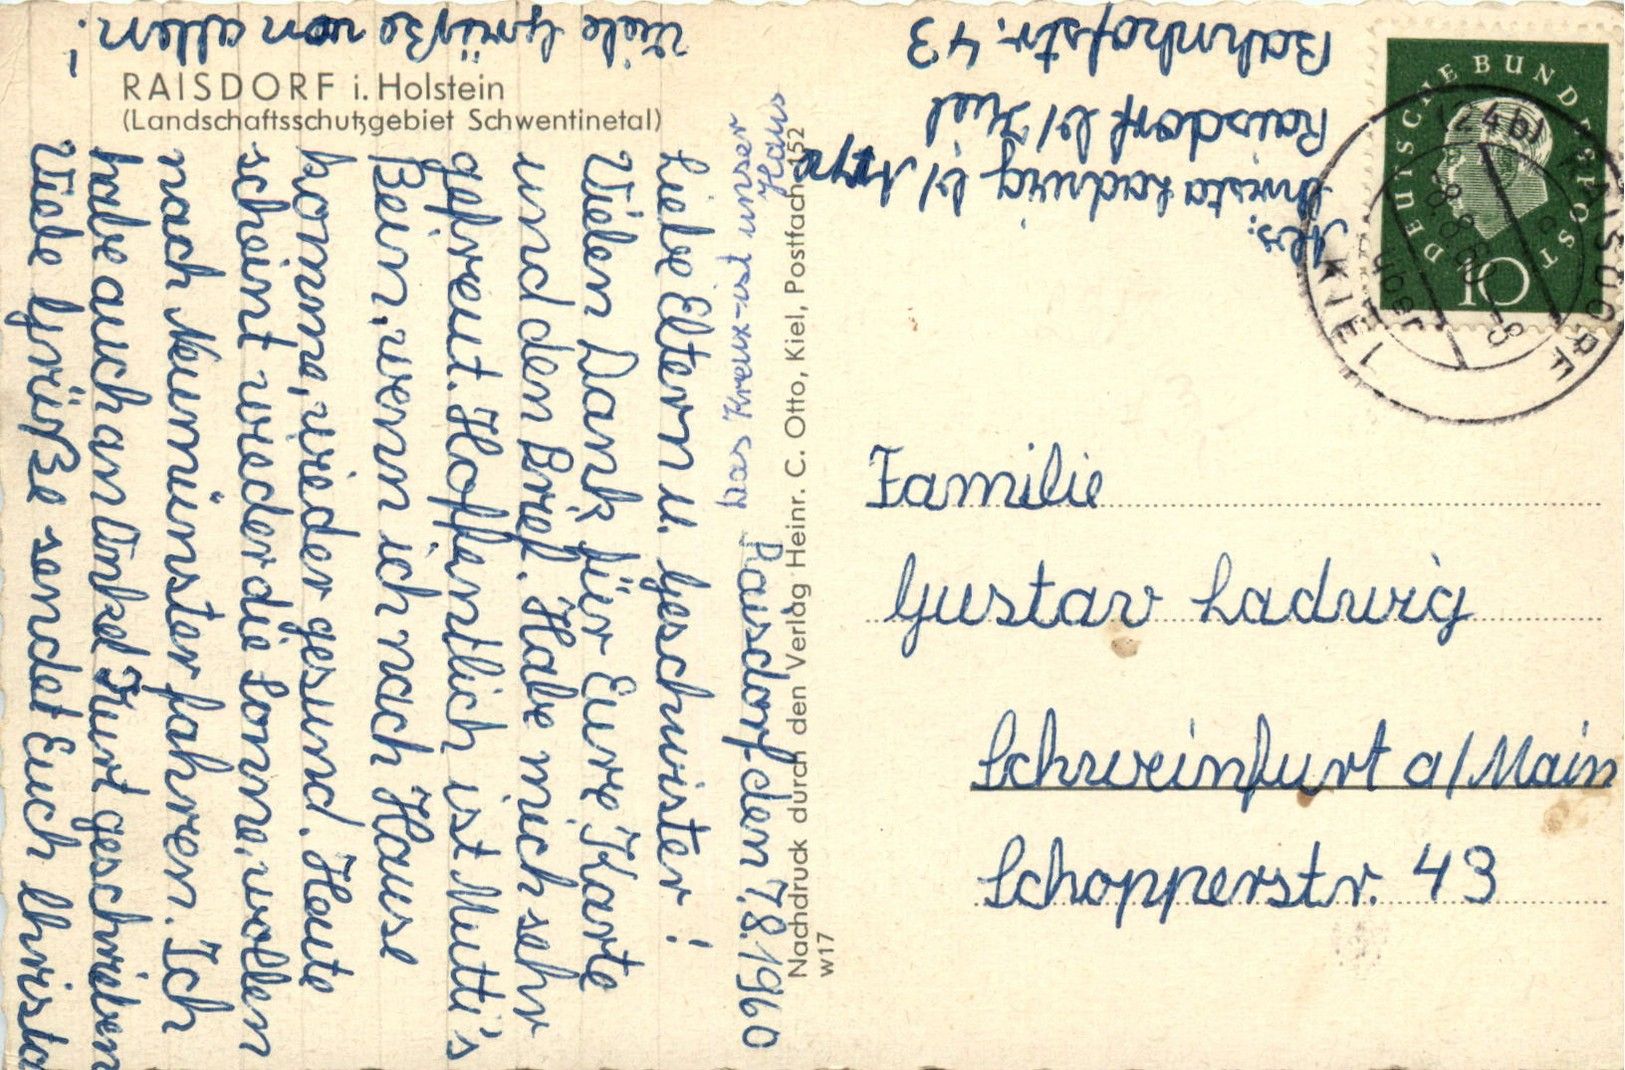 RAISDORF i. Holstein
(Landschaftsschutzgebiet Schwentinetal)
das Kreuz-ist unser
Haus
Raisdorf den 7.8.1960
Liebe Eltern u. Geschwister!
Vielen Dank für Eure Karte
und den Brief. Habe mich sehr
gefreut. Hoffentlich ist Mutti's
Bein, wenn ich nach Hause
komme, wieder gesund. Heute
scheint wieder die Sonne, wollen
nach Neumünster fahren. Ich
habe auch an Onkel Kurt geschrieben
Viele Grüße sendet Euch Christa
Viele Grüße von allen!
Nachdruck durch den Verlag Heinr. C. Otto, Kiel, Postfach 152
W17
Abs:
Christa Ladwig b/
Raisdorf b/ Kiel
Bahnhofstr. 43
DEUTSCHE BUNDESPOST
10
(24b) RAISDORF
-8.8.60-8
Familie
Gustav Ladwig
Schweinfurt a/Main
Schopperstr. 43